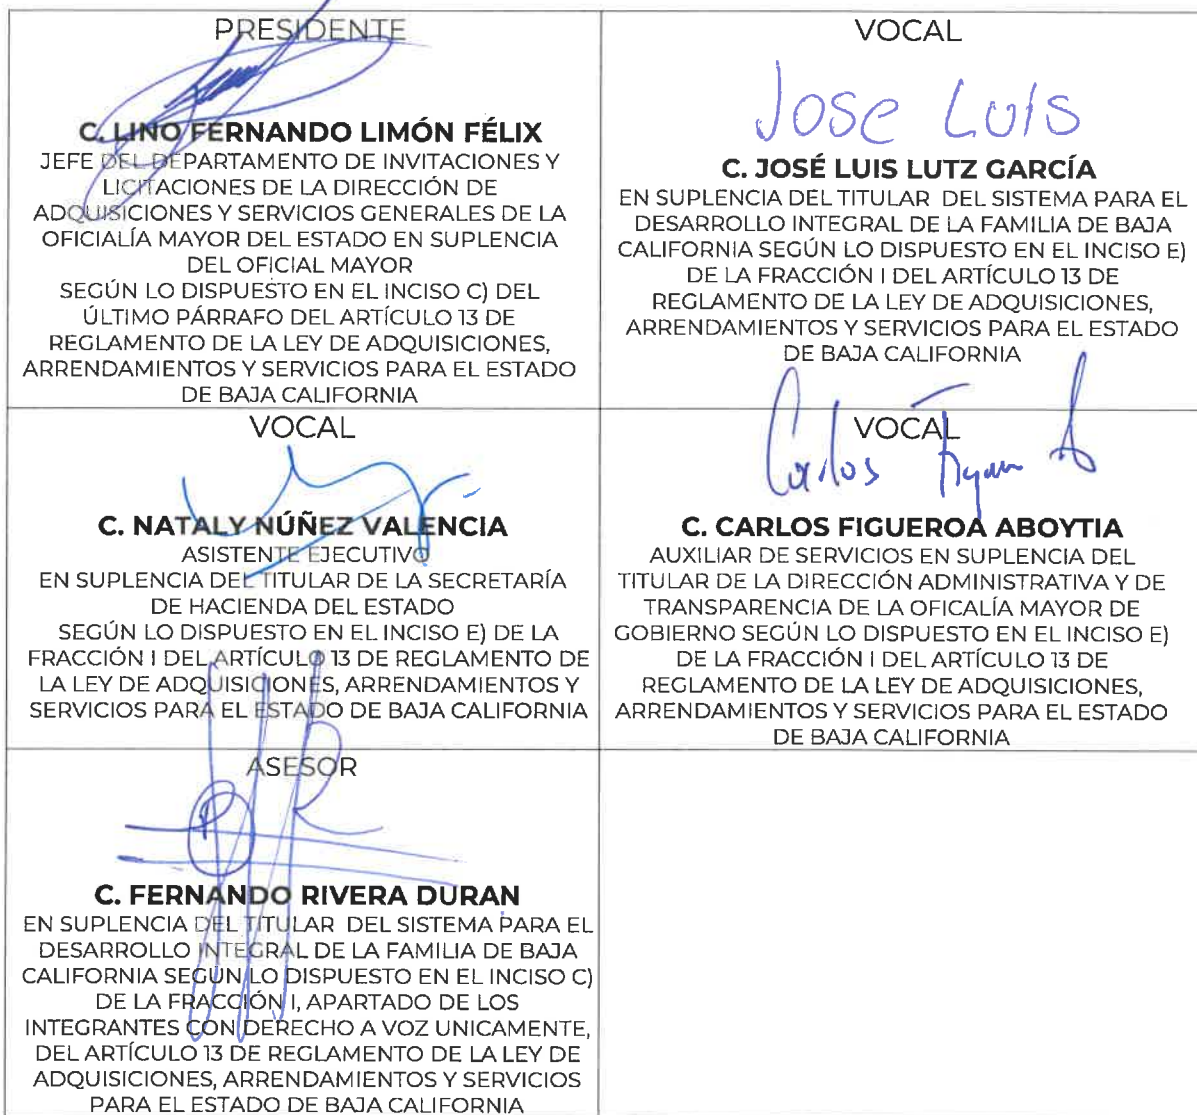 PRESIDENTE
C. LINO FERNANDO LIMÓN FÉLIX
JEFE DEL DEPARTAMENTO DE INVITACIONES Y
LICITACIONES DE LA DIRECCIÓN DE
ADQUISICIONES Y SERVICIOS GENERALES DE LA
OFICIALÍA MAYOR DEL ESTADO EN SUPLENCIA
DEL OFICIAL MAYOR
SEGÚN LO DISPUESTO EN EL INCISO C) DEL
ÚLTIMO PÁRRAFO DEL ARTÍCULO 13 DE
REGLAMENTO DE LA LEY DE ADQUISICIONES,
ARRENDAMIENTOS Y SERVICIOS PARA EL ESTADO
DE BAJA CALIFORNIA
VOCAL
Jose Luis
C. JOSÉ LUIS LUTZ GARCÍA
EN SUPLENCIA DEL TITULAR DEL SISTEMA PARA EL
DESARROLLO INTEGRAL DE LA FAMILIA DE BAJA
CALIFORNIA SEGÚN LO DISPUESTO EN EL INCISO E)
DE LA FRACCIÓN I DEL ARTÍCULO 13 DE
REGLAMENTO DE LA LEY DE ADQUISICIONES,
ARRENDAMIENTOS Y SERVICIOS PARA EL ESTADO
DE BAJA CALIFORNIA
VOCAL
C. NATALY NÚÑEZ VALENCIA
ASISTENTE EJECUTIVO
EN SUPLENCIA DEL TITULAR DE LA SECRETARÍA
DE HACIENDA DEL ESTADO
SEGÚN LO DISPUESTO EN EL INCISO E) DE LA
FRACCIÓN I DEL ARTÍCULO 13 DE REGLAMENTO DE
LA LEY DE ADQUISICIONES, ARRENDAMIENTOS Y
SERVICIOS PARA EL ESTADO DE BAJA CALIFORNIA
VOCAL
Carlos
C. CARLOS FIGUEROA ABOYTIA
AUXILIAR DE SERVICIOS EN SUPLENCIA DEL
TITULAR DE LA DIRECCIÓN ADMINISTRATIVA Y DE
TRANSPARENCIA DE LA OFICALÍA MAYOR DE
GOBIERNO SEGÚN LO DISPUESTO EN EL INCISO E)
DE LA FRACCIÓN I DEL ARTÍCULO 13 DE
REGLAMENTO DE LA LEY DE ADQUISICIONES,
ARRENDAMIENTOS Y SERVICIOS PARA EL ESTADO
DE BAJA CALIFORNIA
ASESOR
C. FERNANDO RIVERA DURAN
EN SUPLENCIA DEL TITULAR DEL SISTEMA PARA EL
DESARROLLO INTEGRAL DE LA FAMILIA DE BAJA
CALIFORNIA SEGÚN LO DISPUESTO EN EL INCISO C)
DE LA FRACCIÓN I, APARTADO DE LOS
INTEGRANTES CON DERECHO A VOZ UNICAMENTE,
DEL ARTÍCULO 13 DE REGLAMENTO DE LA LEY DE
ADQUISICIONES, ARRENDAMIENTOS Y SERVICIOS
PARA EL ESTADO DE BAJA CALIFORNIA